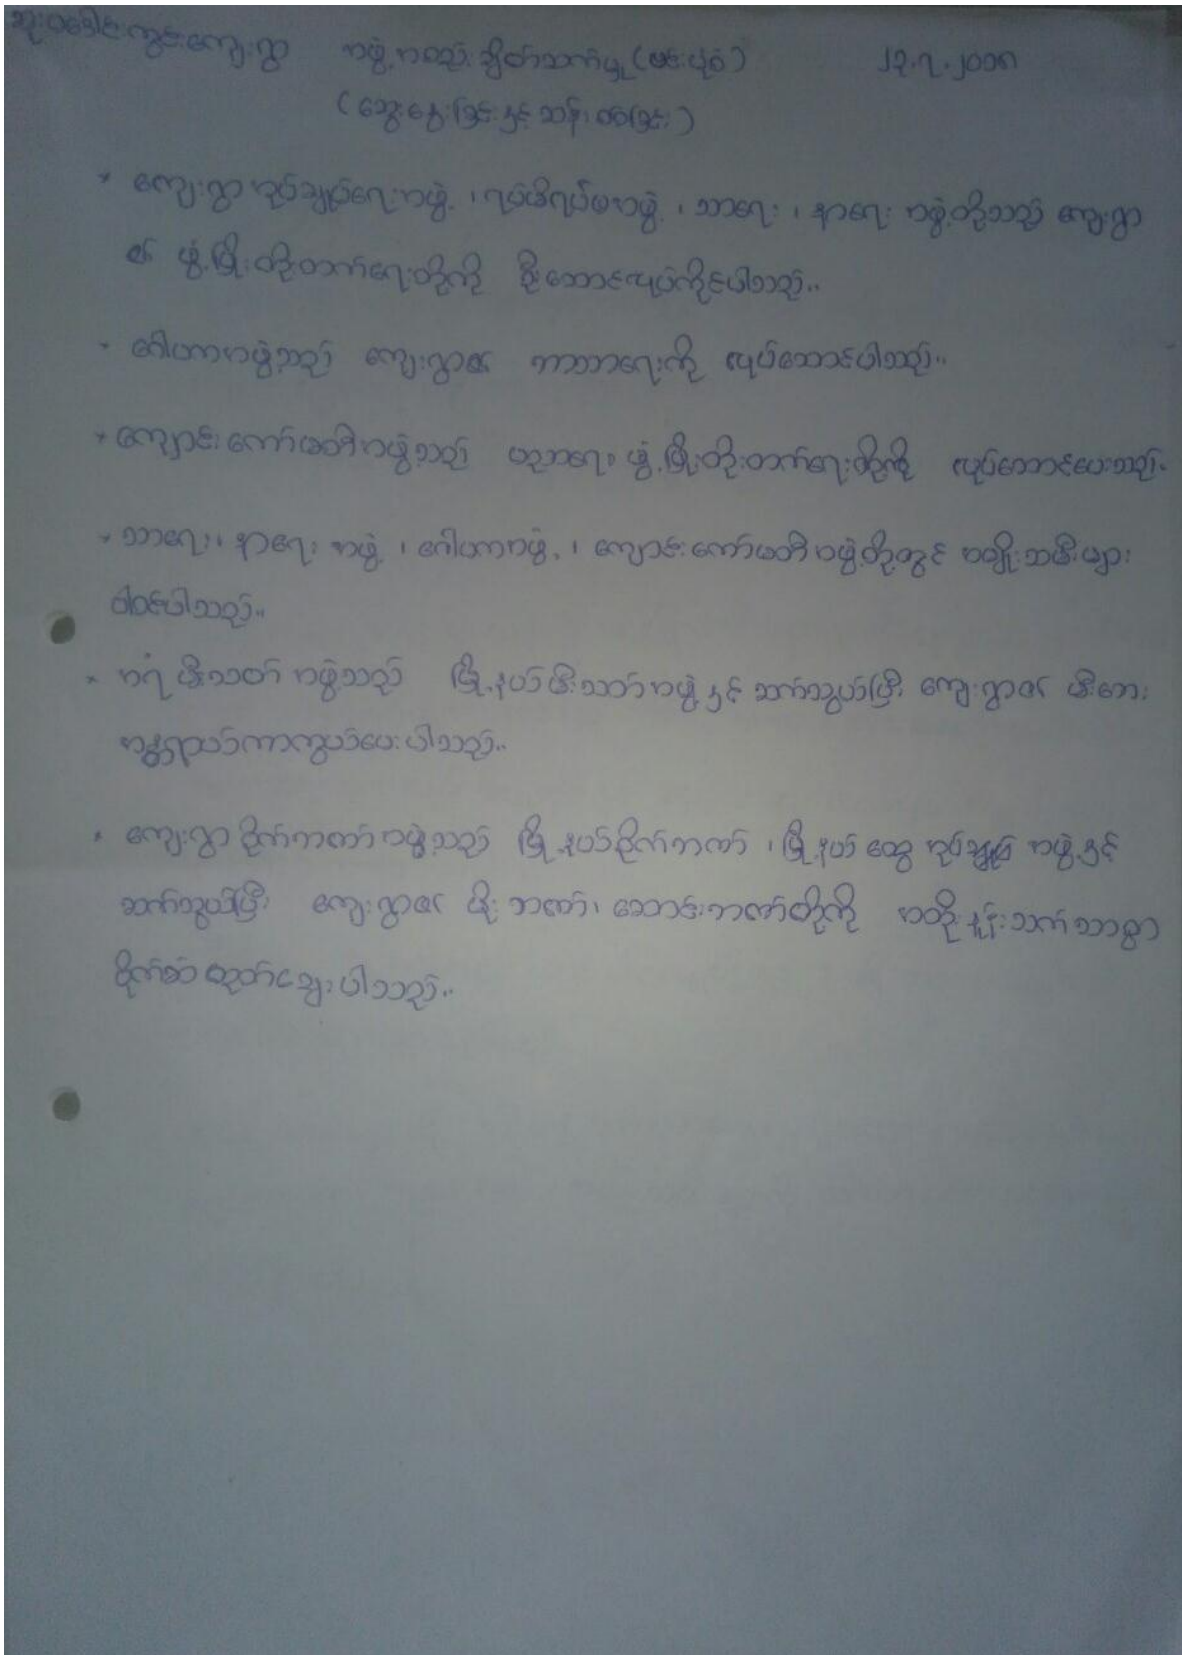 ကျေးရွာ အဖွဲ့အစည်း ချိတ်ဆက်မှု (မင်းပုံစံ) ၂၃.၇.၂၀၁၁
(ဆွေးနွေးခြင်းနှင့် ဆန်းစစ်ခြင်း)
* ကျေးရွာ အုပ်ချုပ်ရေးအဖွဲ့ ၊ ရပ်မိရပ်ဖအဖွဲ့ ၊ သာရေး ၊ နာရေး အဖွဲ့တို့သည် ကျေးရွာ
၏ ဖွံ့ဖြိုးတိုးတက်ရေးတို့ကို ဦးဆောင်လုပ်ကိုင်ပါသည်။
* ဂေါပကအဖွဲ့သည် ကျေးရွာ၏ ဘာသာရေးကို လုပ်ဆောင်ပါသည်။
* ကျောင်းကော်မတီအဖွဲ့သည် ပညာရေး ဖွံ့ဖြိုးတိုးတက်ရေးတို့ကို လုပ်ဆောင်ပေးသည်။
* သာရေး၊ နာရေး အဖွဲ့ ၊ ဂေါပကအဖွဲ့ ၊ ကျောင်းကော်မတီအဖွဲ့တို့တွင် အမျိုးသမီးများ
ပါဝင်ပါသည်။
* အရံ မီးသတ် အဖွဲ့သည် မြို့နယ်မီးသတ်အဖွဲ့နှင့် ဆက်သွယ်ပြီး ကျေးရွာ၏ မီးဘေး
အန္တရာယ်ကာကွယ်ပေးပါသည်။
* ကျေးရွာ စိုက်ဘဏ် အဖွဲ့သည် မြို့နယ်စိုက်ဘဏ် ၊ မြို့နယ် ထွေ အုပ်ချုပ် အဖွဲ့နှင့်
ဆက်သွယ်ပြီး ကျေးရွာ၏ မိုးဘဏ်၊ ဆောင်းဘဏ်တို့ကို အတိုးနှုန်းသက်သာစွာ
စိုက်စံ ထုတ်ချေးပါသည်။